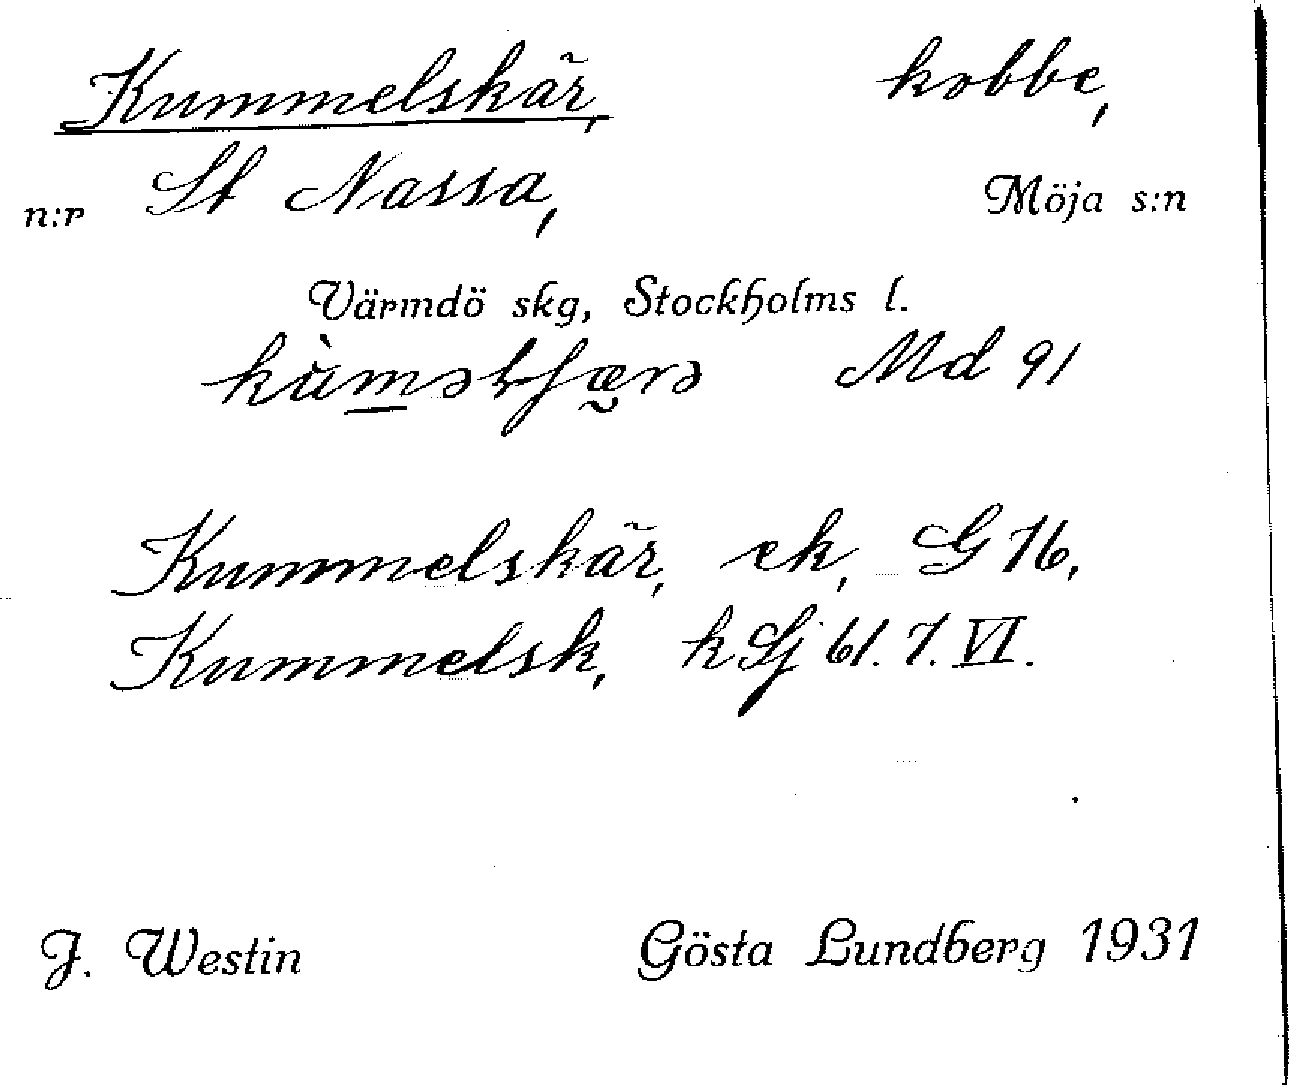 Kummelskär, kobbe,
n:r St Nassa, Möja s:n
Värmdö skg, Stockholms l.
Md 91
Kummelskär, ek, G 76,
Kummelsk, k Sj 61. 7. VI.
J. Westin Gösta Lundberg 1931